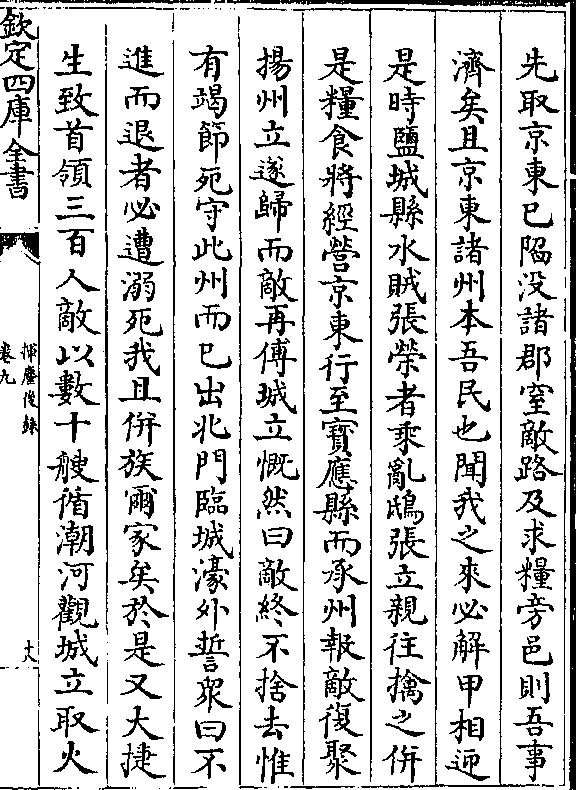 先取京東已陷没諸郡窒敵路及求糧旁邑則吾事
濟矣且京東諸州本吾民也聞我之來必解甲相迎
是時鹽城縣水賊張榮者乘亂鴟張立親往擒之併
是糧食將經營京東行至寳應縣而承州報敵復聚
揚州立遂歸而敵再傅城立慨然曰敵終不捨去惟
有竭節死守此州而已出北門臨城濠外誓衆曰不
進而退者必遭溺死我且併族爾家矣於是又大捷
生致首領三百人敵以數十艘循潮河觀城立取火
欽定四庫全書
揮麈後録
卷九